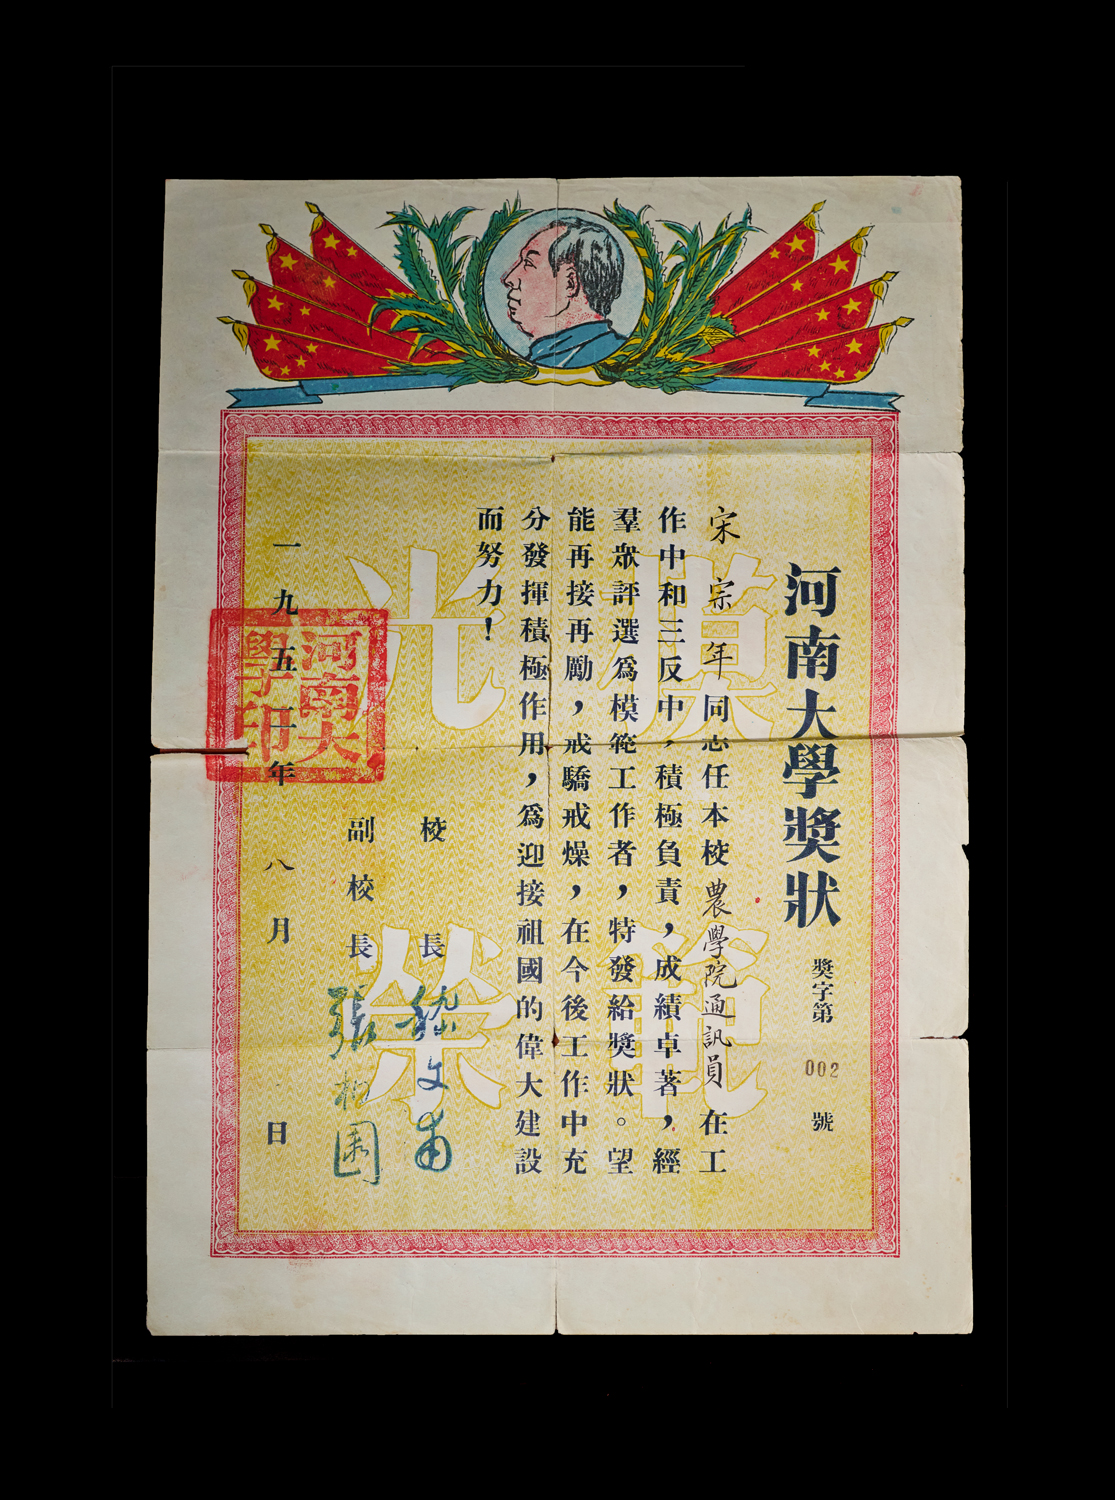 河南大學獎狀
獎字第 002 號
宋宗年同志任本校農學院通訊員在工
作中和三反中，積極負責，成績卓著，經
羣眾評選爲模範工作者，特發給獎狀。望
能再接再勵，戒驕戒燥，在今後工作中充
分發揮積極作用，爲迎接祖國的偉大建設
而努力！
校長 嵇文甫
副校長 張柏園
一九五二年八月 日
河南大
學印
模範
光榮